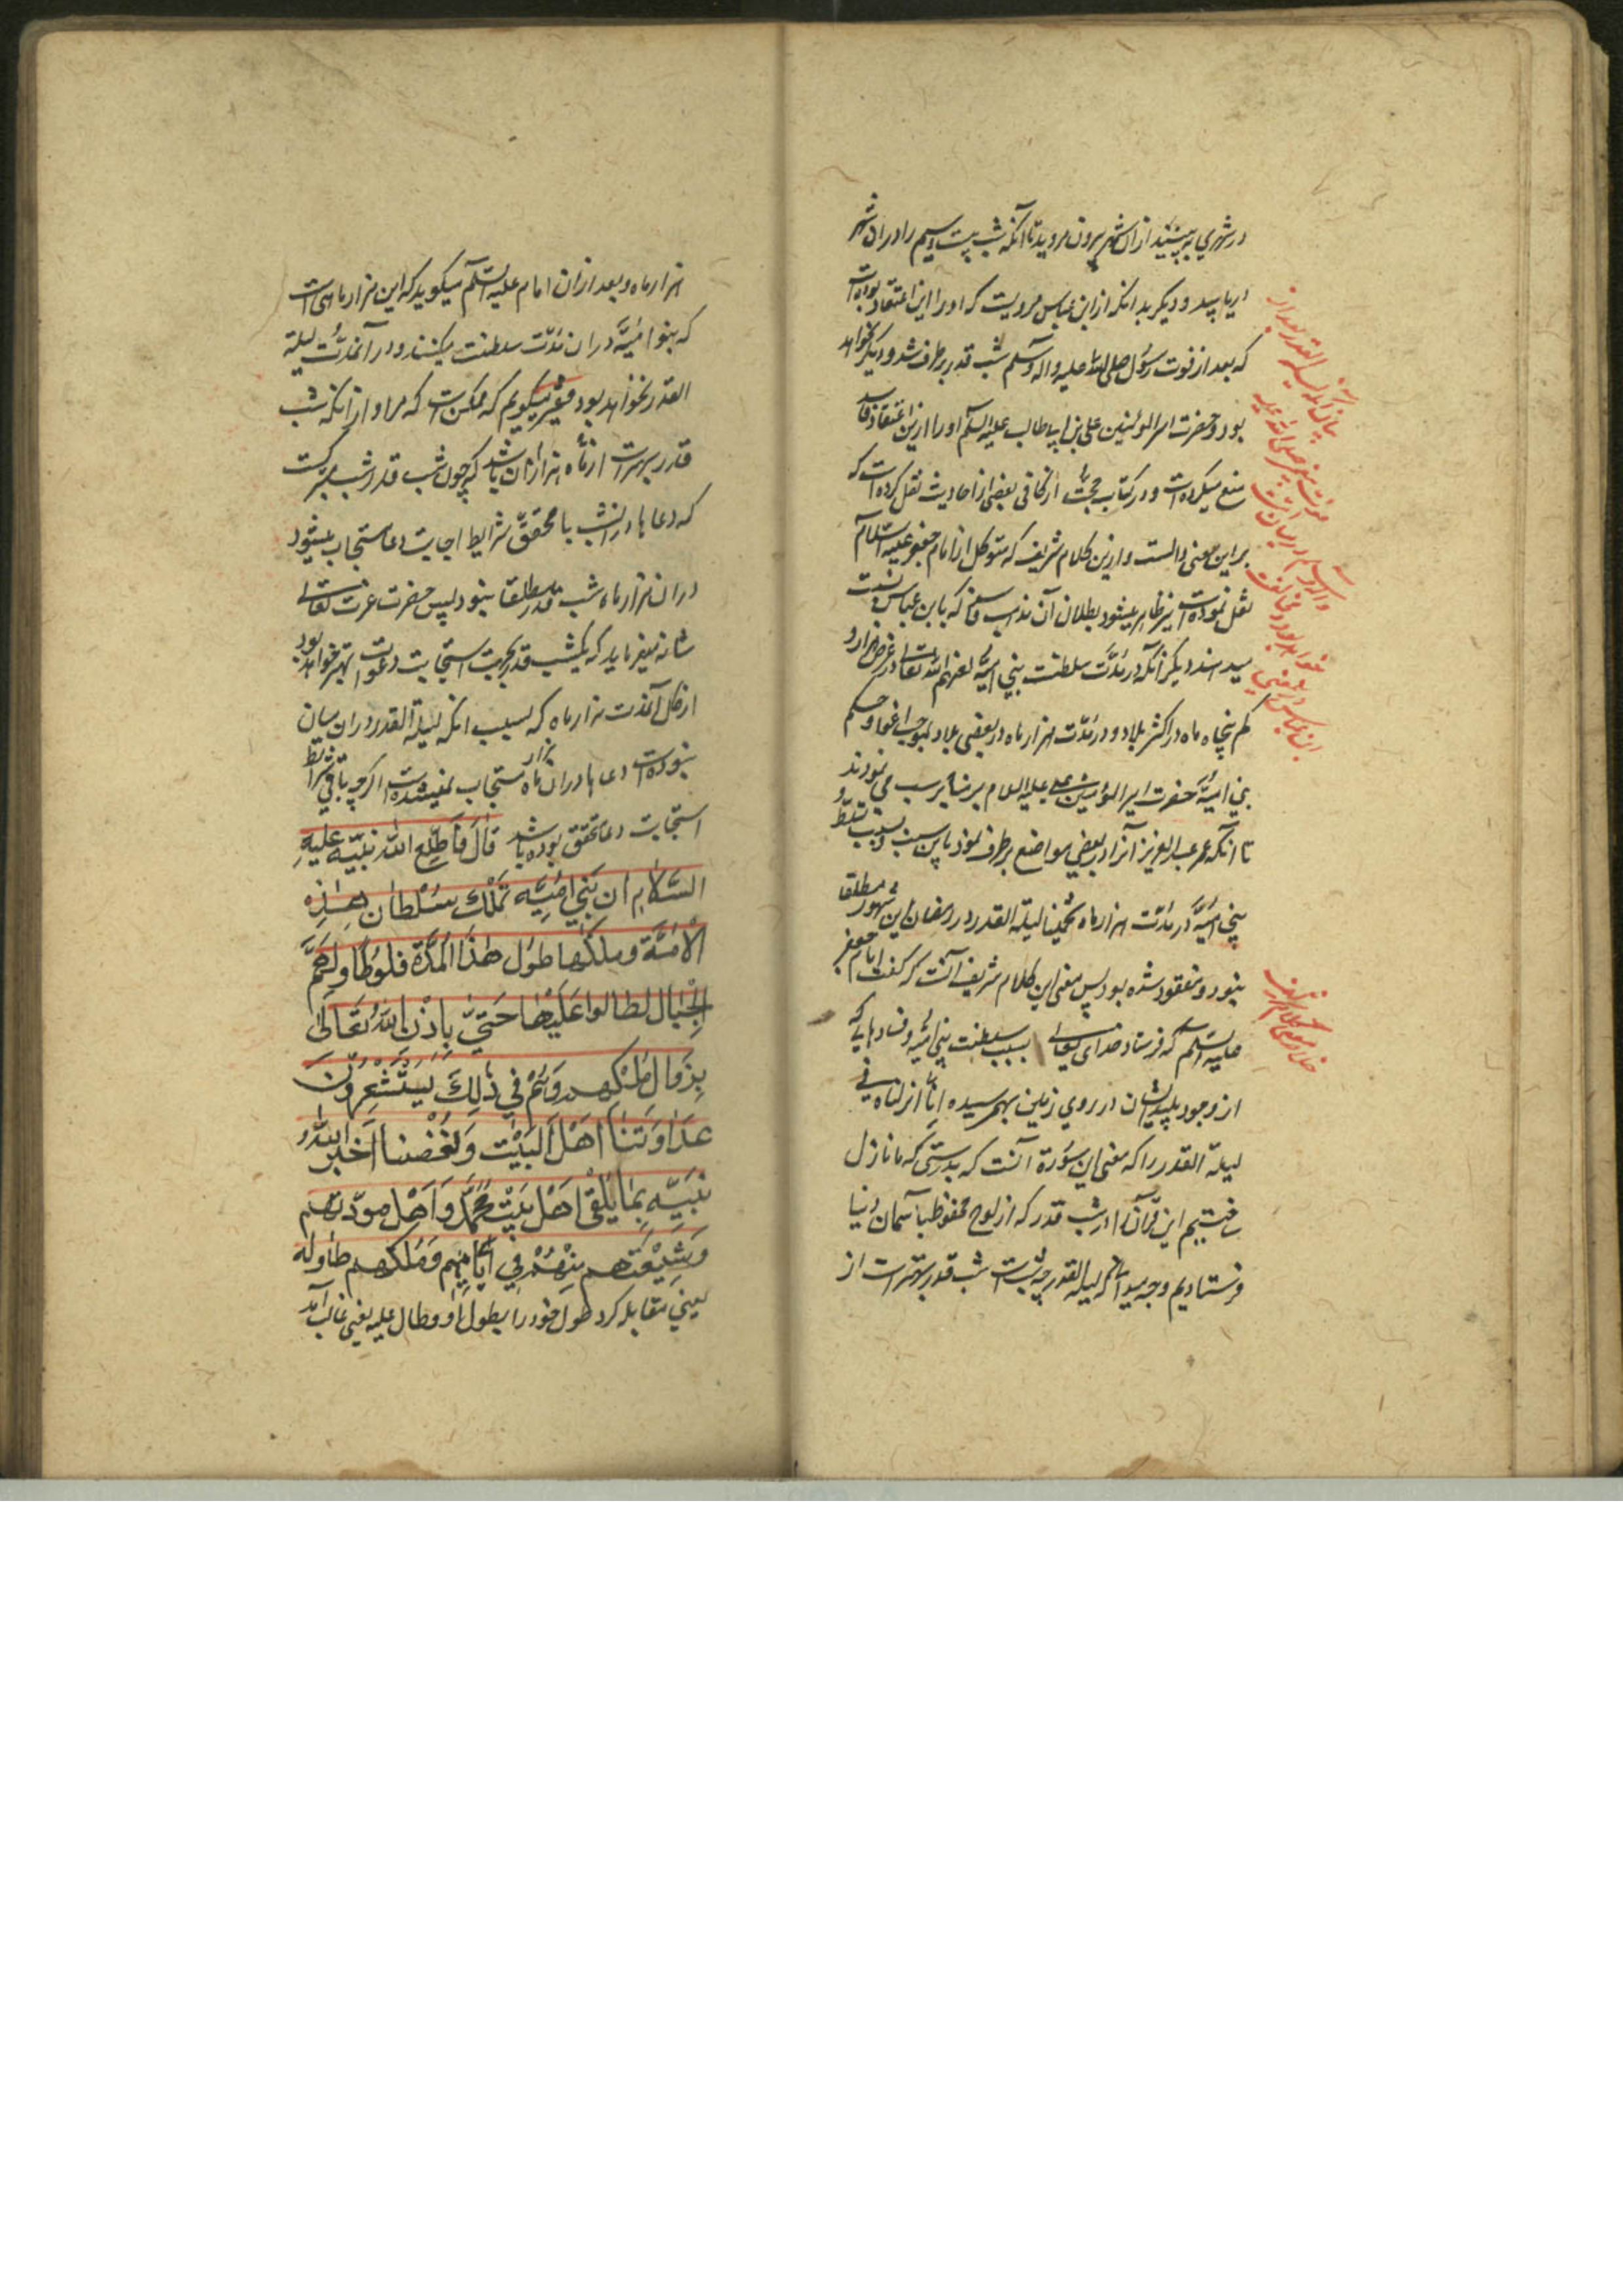 در شهری به بینید ازان شهر بیرون مروید تا آنکه شب بیست وسیم را دران شهر
دریابید و دیگر بدانکه از ابن عباس مرویست که او را این اعتقاد بوده است
که بعد از فوت رسول صلی الله علیه واله وسلم شب قدر برطرف شد و دیگر نخواهد
بود و حضرت امیر المؤمنین علی بن ابی طالب علیه السلم او را ازین اعتقاد فاسد
منع میکرده است و در کتاب حجت از کافی بعضی از احادیث نقل کرده است که
براین معنی دالست و ازین کلام شریف که متوکل از امام جعفر علیه السلام
نقل نموده است نیز ظاهر میشود بطلان آن مذهب فاسد که بابن عباس نسبت
میدهند دیگر آنکه در مدّت سلطنت بنی امیّه لعنهم الله تعالی در عرض هزار و
کم پنجاه ماه در اکثر بلاد و در مدّت هزار ماه در بعضی بلاد بموجب اغوا و حکم
بنی امیّه حضرت امیر المؤمنین علی علیه السلام بر منابر سب می نمودند
تا آنکه عمر عبد العزیز آنرا در بعضی مواضع برطرف نمود باین سبب و بسبب تسلّط
بنی امیّه در مدّت هزار ماه تخمینا لیلة القدر در رمضان این شهور مطلقا
نبود و مفقود شده بود پس معنی این کلام شریف آنست که گفت امام جعفر
علیه السلم که فرستاد خدای تعالی بسبب سلطنت بنی امیّه و فسادهایی که
از وجود پلید ایشان در روی زمین بهم رسیده انّا انزلناه فی
لیلة القدر را که معنی این سوُرة آنست که بدرستی که ما نازل
ساختیم این قرآن را در شب قدر که از لوح محفوظ بآسمان دنیا
فرستادیم و چه میدانی که لیلة القدر چه شب است شب قدر بهتر است از
هزار ماه و بعد ازان امام علیه السلم میگوید که این هزار ماهی است
که بنو امیّه دران مدّت سلطنت میکنند و در آنمدّت لیلة
القدر نخواهد بود فقیر میگویم که ممکن است که مراد از آنکه شب
قدر بهتر است از ماه هزار آن باشد که چون شب قدر شب متبرکست
که دعاها درانشب با تحقّق شرایط اجابت دعا مستجاب میشود
دران هزار ماه شب قدر مطلقا نبود پس حضرت عزت تعالی
شانه میفرماید که یکشب قدر بجهت استجابت دعوات بهتر خواهد بود
از کل آنمدت هزار ماه که بسبب آنکه لیلة القدر دران میان
نبوده است دعاها دران هزار ماه مستجاب نمیشده است اگرچه باقی شرایط
استجابت دعا متحقق بوده باشد قال فَاَطلَع الله نبیّه علیهِ
السّلام ان بَنی امیّه تَملک سُلطان هذِه
الاُمّة وملکها طول هذا المدّة فلو طاولتهم
الجبال لطالوا علیها حتّی یأذن الله تعالی
بِزوال ملکهم وهُم فی ذلِكَ یَستشعِرُون
عداوتنا اهل البیت وبغضنا اَخبر الله
نبیّه بما یلقی اهل بیت محمّد واهل مودّتهم
وشیعتهم منهم فی ایامِهم وملکهم طاوله
یعنی مقابله کرد طول خود را بطول او و طال علیه یعنی غالب آمد